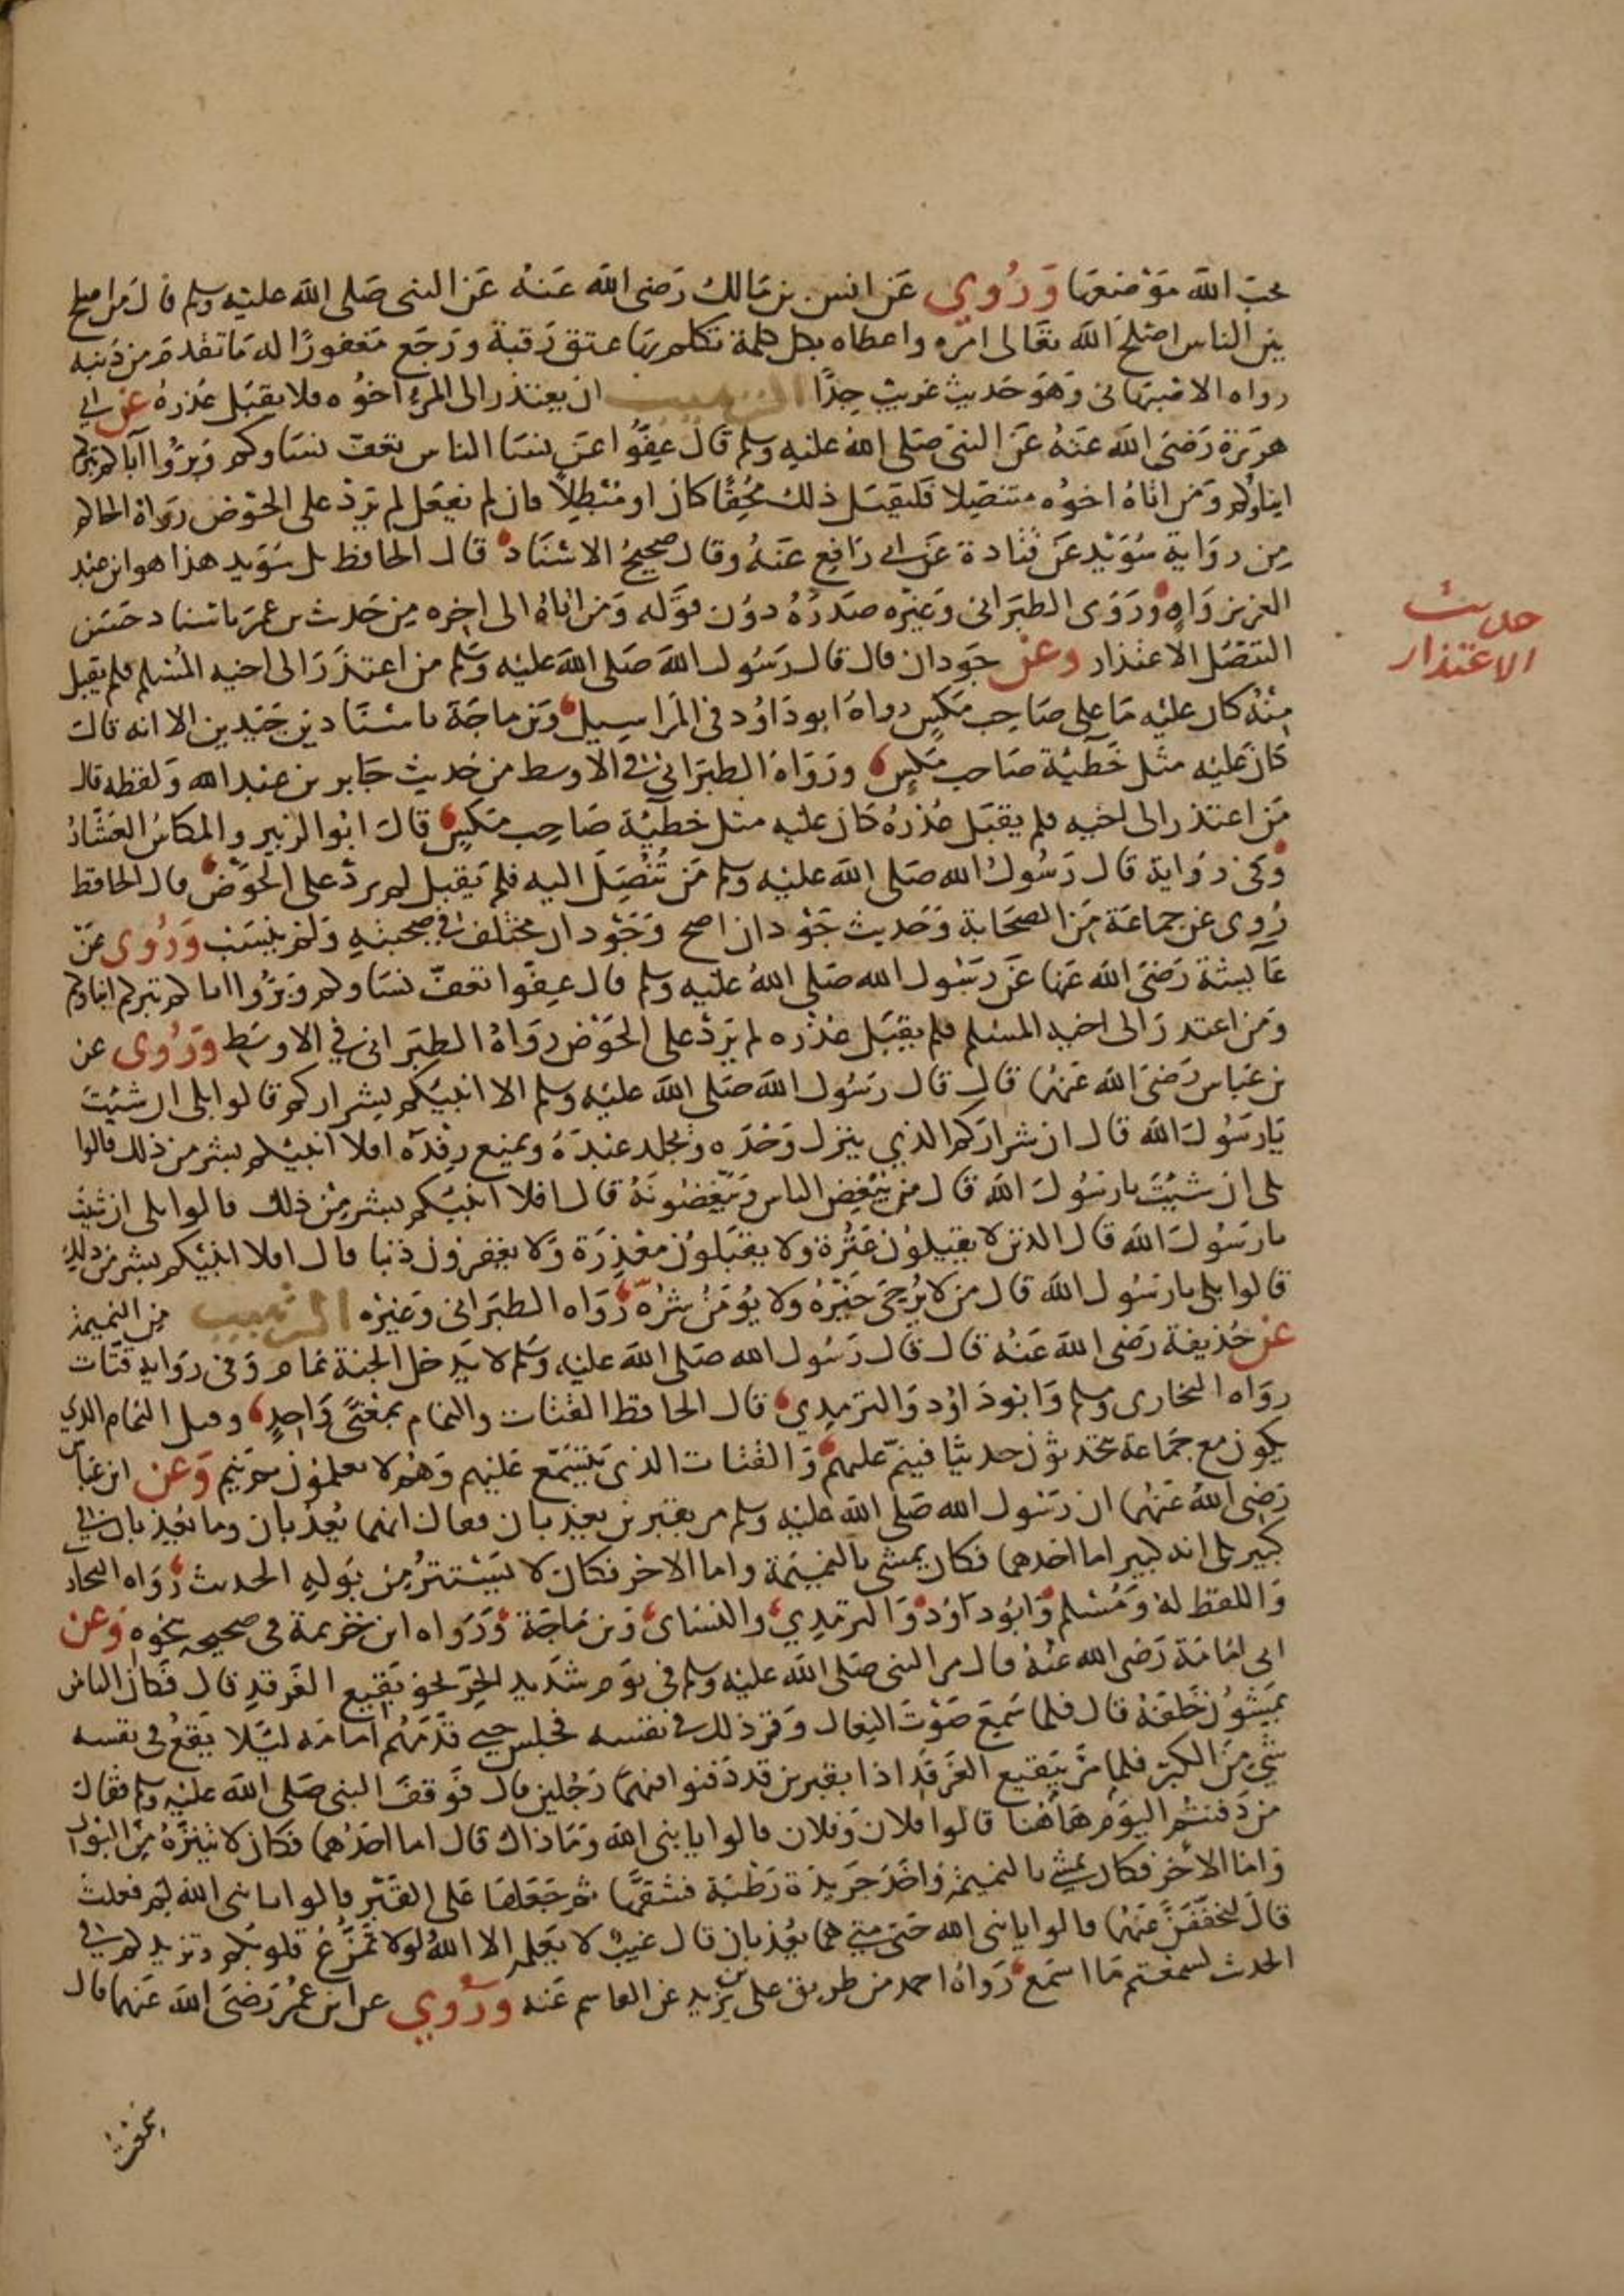 يحب الله موضعها وروي عن انس بن مالك رضى الله عنه عن النبى صلى الله عليه وسلم قال من اصلح
بين الناس اصلح الله تعالى امره واعطاه بكل كلمة تكلم بها عتق رقبة ورجع مغفورا له ما تقدم من ذنبه
رواه الاصبهانى وهو حديث غريب جدا الترهيب ان يعتذر الى المرء اخوه فلا يقبل عذره عن ابى
هريرة رضى الله عنه عن النبى صلى الله عليه وسلم قال عفوا عن نسا الناس تعف نساوكم وبروا آباكم تبركم
ابناوكم ومن اتاه اخوه متنصلا فليقبل ذلك محقا كان او مبطلا فان لم يفعل لم يرد على الحوض رواه الحاكم
من رواية سويد عن قتادة عن ابى رافع عنه وقال صحيح الاسناد قال الحافظ بل سويد هذا هو ابن عبد
العزيز واه وروى الطبرانى وغيره صدره دون قوله ومن اتاه الى اخره من حديث بن عمر باسناد حسن
التنصل الاعتذار وعن جودان قال قال رسول الله صلى الله عليه وسلم من اعتذر الى اخيه المسلم فلم يقبل
منه كان عليه ما على صاحب مكس رواه ابو داود فى المراسيل وبن ماجة باسنادين جيدين الا انه قال
كان عليه مثل خطيئة صاحب مكس ورواه الطبرانى فى الاوسط من حديث جابر بن عبد الله ولفظه قال
من اعتذر الى اخيه فلم يقبل عذره كان عليه مثل خطيئة صاحب مكس قال ابو الزبير والمكاس العشار
وفى رواية قال رسول الله صلى الله عليه وسلم من تنصل اليه فلم يقبل لم يرد على الحوض قال الحافظ
روى عن جماعة من الصحابة وحديث جودان اصح وجودان مختلف فى صحبته ولم ينسب وروى عن
عايشة رضى الله عنها عن رسول الله صلى الله عليه وسلم قال عفوا تعف نساوكم وبروا اباكم تبركم ابناوكم
ومن اعتذر الى اخيه المسلم فلم يقبل عذره لم يرد على الحوض رواه الطبرانى فى الاوسط وروى عن
بن عباس رضى الله عنهما قال قال رسول الله صلى الله عليه وسلم الا انبيكم بشراركم قالوا بلى ان شيت
يا رسول الله قال ان شراركم الذي ينزل وحده ويجلد عبده ويمنع رفده افلا انبيكم بشر من ذلك قالوا
بلى ان شيت يا رسول الله قال من يبغض الناس ويبغضونه قال افلا انبيكم بشر من ذلك قالوا بلى ان شيت
يا رسول الله قال الذين لا يقيلون عثرة ولا يقبلون معذرة ولا يغفرون ذنبا قال افلا انبيكم بشر من ذلك
قالوا بلى يا رسول الله قال من لا يرجى خيره ولا يومن شره رواه الطبرانى وغيره الترهيب من النميمة
عن حذيفة رضى الله عنه قال قال رسول الله صلى الله عليه وسلم لا يدخل الجنة نمام وفى رواية قتات
رواه البخارى ومسلم وابو داود والترمذي قال الحافظ القتات والنمام بمعنى واحد وقيل النمام الذي
يكون مع جماعة يتحدثون حديثا فينم عليهم والقتات الذى يتسمع عليهم وهم لا يعلمون ثم ينم وعن ابن عباس
رضى الله عنهما ان رسول الله صلى الله عليه وسلم مر بقبرين يعذبان فقال انهما يعذبان وما يعذبان فى
كبير بلى انه كبير اما احدهما فكان يمشى بالنميمة واما الاخر فكان لا يستتر من بوله الحديث رواه البخارى
واللفظ له ومسلم وابو داود والترمذي والنساى وبن ماجة ورواه ابن خزيمة فى صحيحه بنحوه وعن
ابى امامة رضى الله عنه قال مر النبى صلى الله عليه وسلم فى يوم شديد الحر نحو بقيع الغرقد قال فكان الناس
يمشون خلفه قال فلما سمع صوت النعال وقر ذلك فى نفسه فجلس حتى قدمهم امامه ليلا يقع فى نفسه
شي من الكبر فلما مر ببقيع الغرقد اذا بقبرين قد دفنوا فيهما رجلين قال فوقف النبى صلى الله عليه وسلم فقال
من دفنتم اليوم هاهنا قالوا فلان وفلان قالوا يا نبى الله وما ذاك قال اما احدهما فكان لا يتنزه من البول
واما الاخر فكان يمشى بالنميمة واخذ جريدة رطبة فشقها ثم جعلها على القبر قالوا يا نبى الله لم فعلت
قال ليخففن عنهما قالوا يا نبى الله حتى متى هما يعذبان قال غيب لا يعلمه الا الله ولولا تمزع قلوبكم وتزيدكم فى
الحديث لسمعتم ما اسمع رواه احمد من طريق على بن يزيد عن القاسم عنه وروي عن ابن عمر رضى الله عنهما قال
حديث
الاعتذار